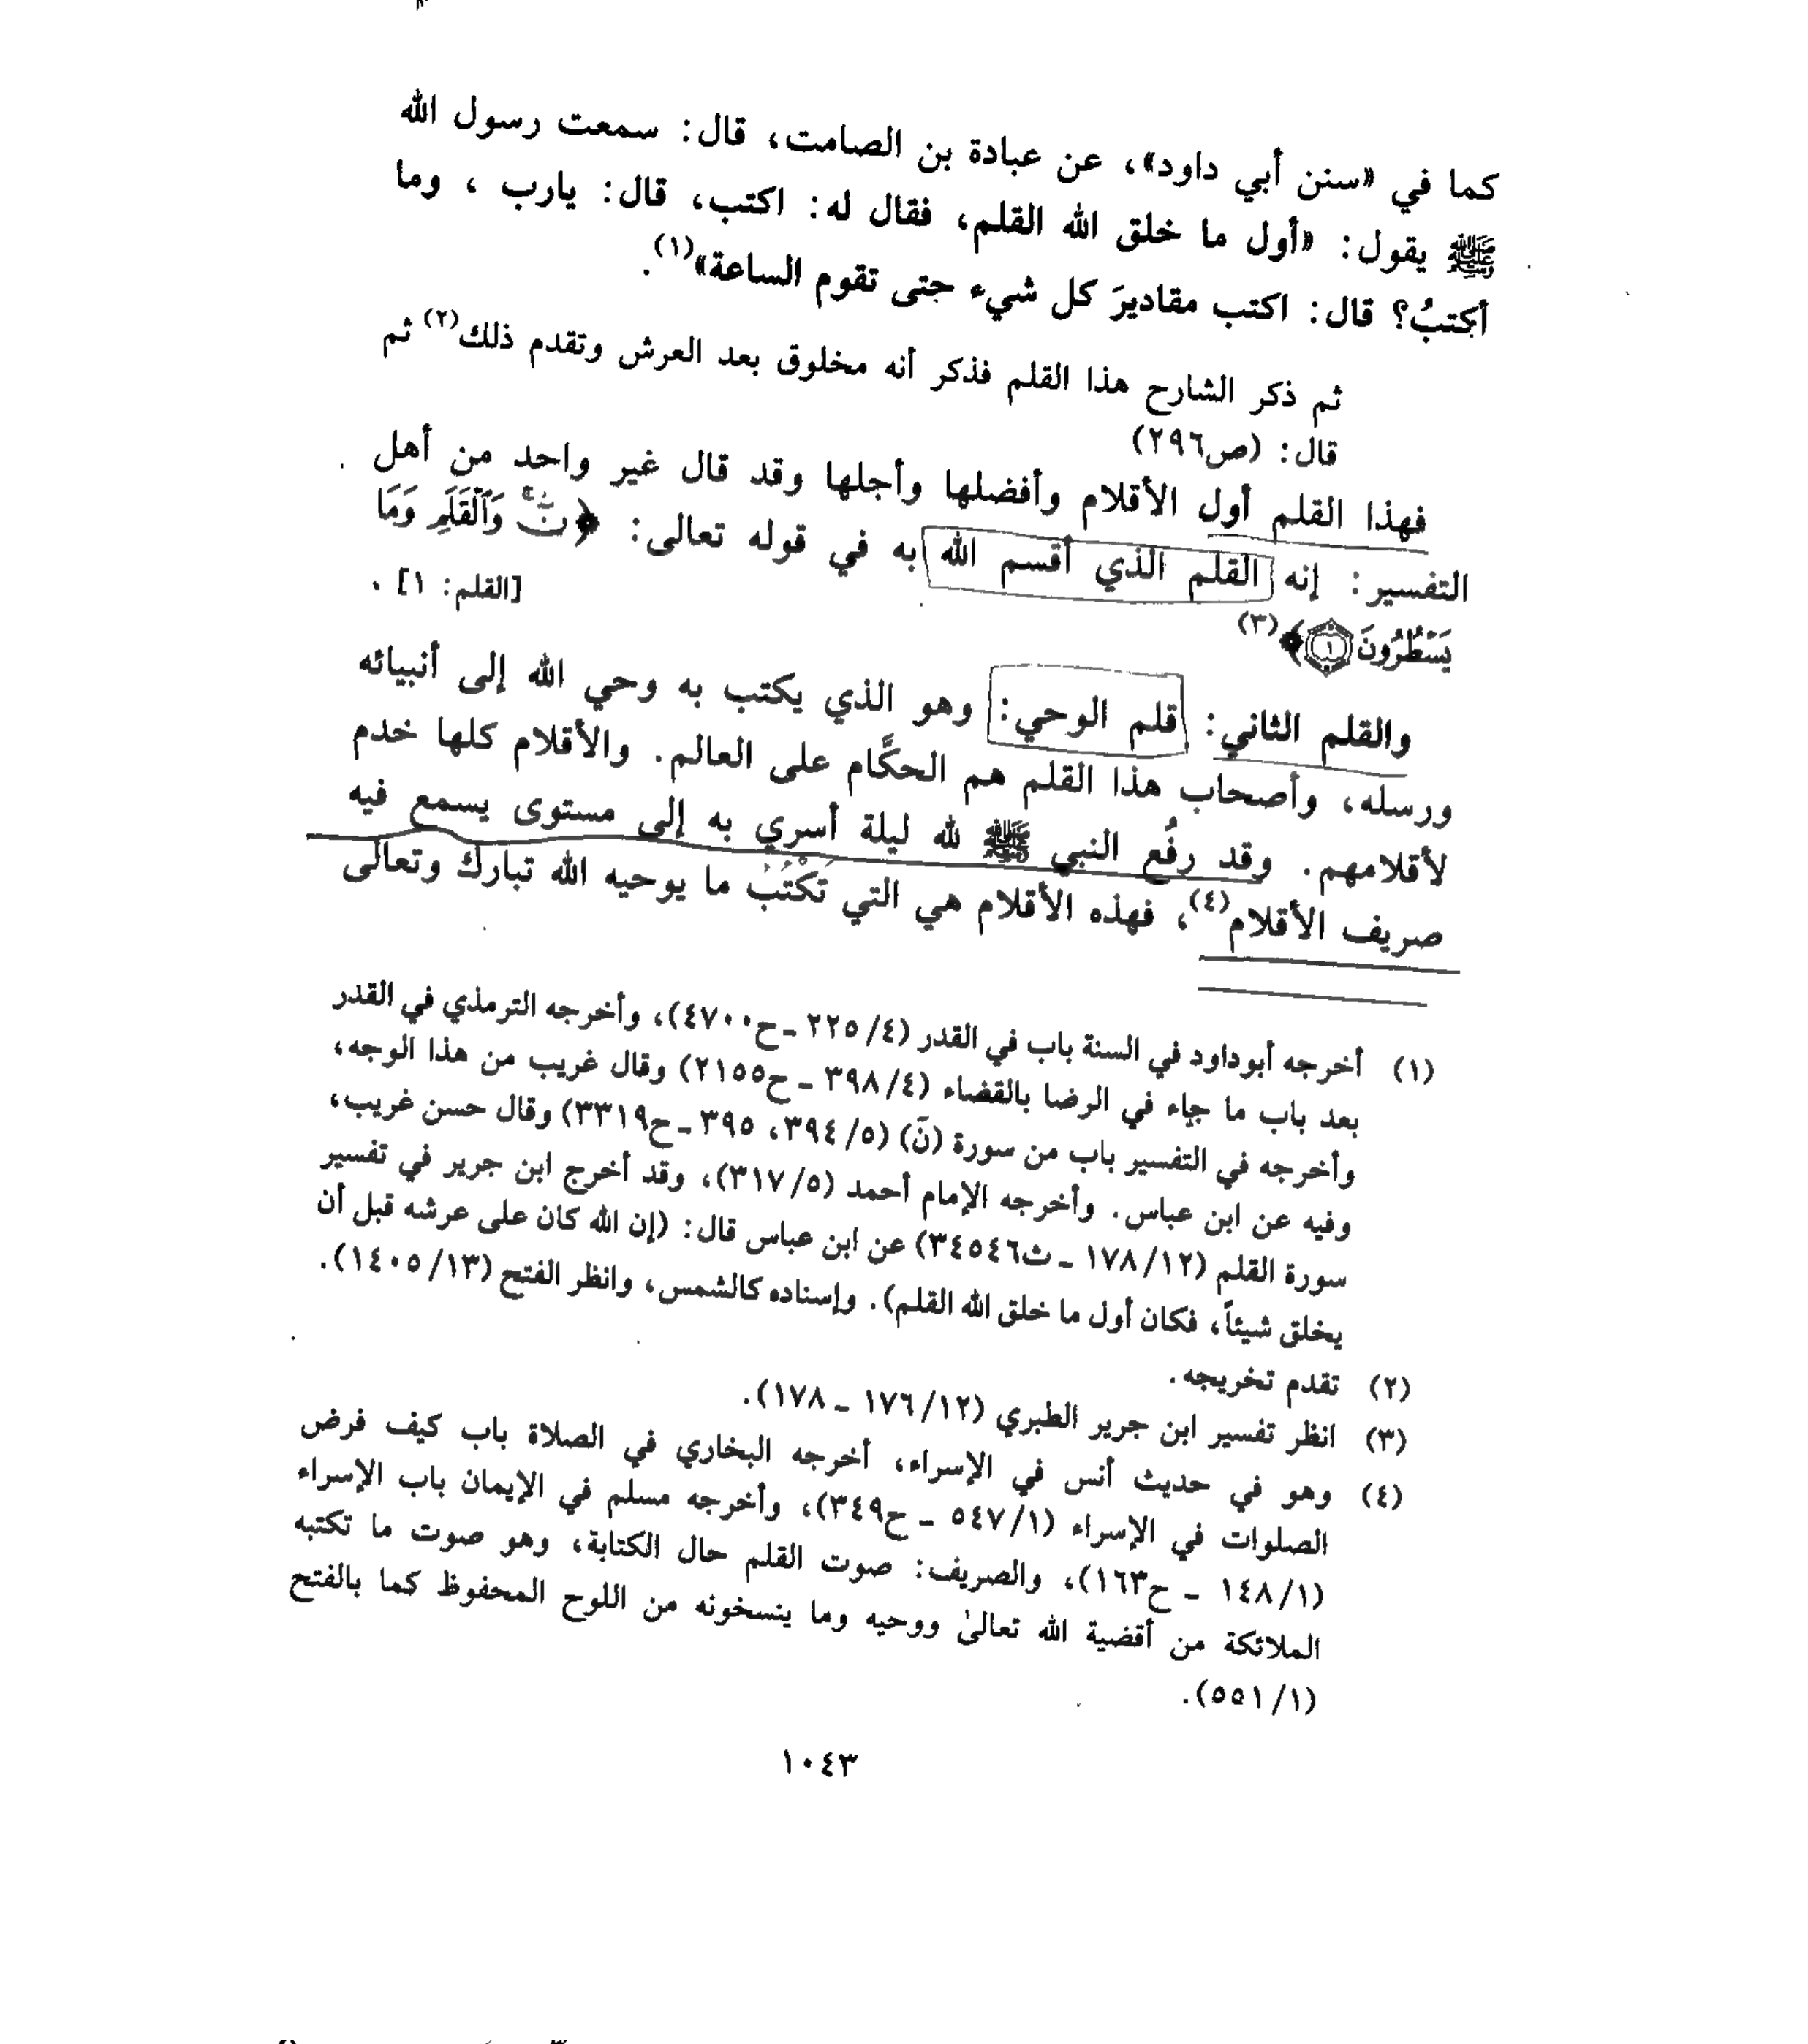 كما في «سنن أبي داود»، عن عبادة بن الصامت، قال: سمعت رسول الله
ﷺ يقول: «أول ما خلق الله القلم، فقال له: اكتب، قال: يارب ، وما
أكتبُ؟ قال: اكتب مقاديرَ كل شيء حتى تقوم الساعة»(١).
ثم ذكر الشارح هذا القلم فذكر أنه مخلوق بعد العرش وتقدم ذلك(٢) ثم
قال: (ص٢٩٦)
فهذا القلم أول الأقلام وأفضلها وأجلها وقد قال غير واحد من أهل
التفسير: إنه القلم الذي أقسم الله به في قوله تعالى: ﴿نٓ وَٱلْقَلَمِ وَمَا
يَسْطُرُونَ ١﴾(٣) [القلم: ١] .
والقلم الثاني: قلم الوحي: وهو الذي يكتب به وحي الله إلى أنبيائه
ورسله، وأصحاب هذا القلم هم الحكَّام على العالم. والأقلام كلها خدم
لأقلامهم. وقد رفُع النبي ﷺ لله ليلة أسري به إلى مستوى يسمع فيه
صريف الأقلام(٤)، فهذه الأقلام هي التي تَكْتُبُ ما يوحيه الله تبارك وتعالى
(١) أخرجه أبوداود في السنة باب في القدر (٤/ ٢٢٥ ـ ح٤٧٠٠)، وأخرجه الترمذي في القدر
بعد باب ما جاء في الرضا بالقضاء (٤/ ٣٩٨ ـ ح٢١٥٥) وقال غريب من هذا الوجه،
وأخرجه في التفسير باب من سورة (نَ) (٥/ ٣٩٤، ٣٩٥ ـ ح٣٣١٩) وقال حسن غريب،
وفيه عن ابن عباس. وأخرجه الإمام أحمد (٥/ ٣١٧)، وقد أخرج ابن جرير في تفسير
سورة القلم (١٢/ ١٧٨ ـ ث٣٤٥٤٦) عن ابن عباس قال: (إن الله كان على عرشه قبل أن
يخلق شيئاً، فكان أول ما خلق الله القلم). وإسناده كالشمس، وانظر الفتح (١٣/ ١٤٠٥).
(٢) تقدم تخريجه.
(٣) انظر تفسير ابن جرير الطبري (١٢/ ١٧٦ ـ ١٧٨).
(٤) وهو في حديث أنس في الإسراء، أخرجه البخاري في الصلاة باب كيف فرض
الصلوات في الإسراء (١/ ٥٤٧ ـ ح٣٤٩)، وأخرجه مسلم في الإيمان باب الإسراء
(١/ ١٤٨ ـ ح١٦٣)، والصريف: صوت القلم حال الكتابة، وهو صوت ما تكتبه
الملائكة من أقضية الله تعالىٰ ووحيه وما ينسخونه من اللوح المحفوظ كما بالفتح
(١/ ٥٥١).
١٠٤٣